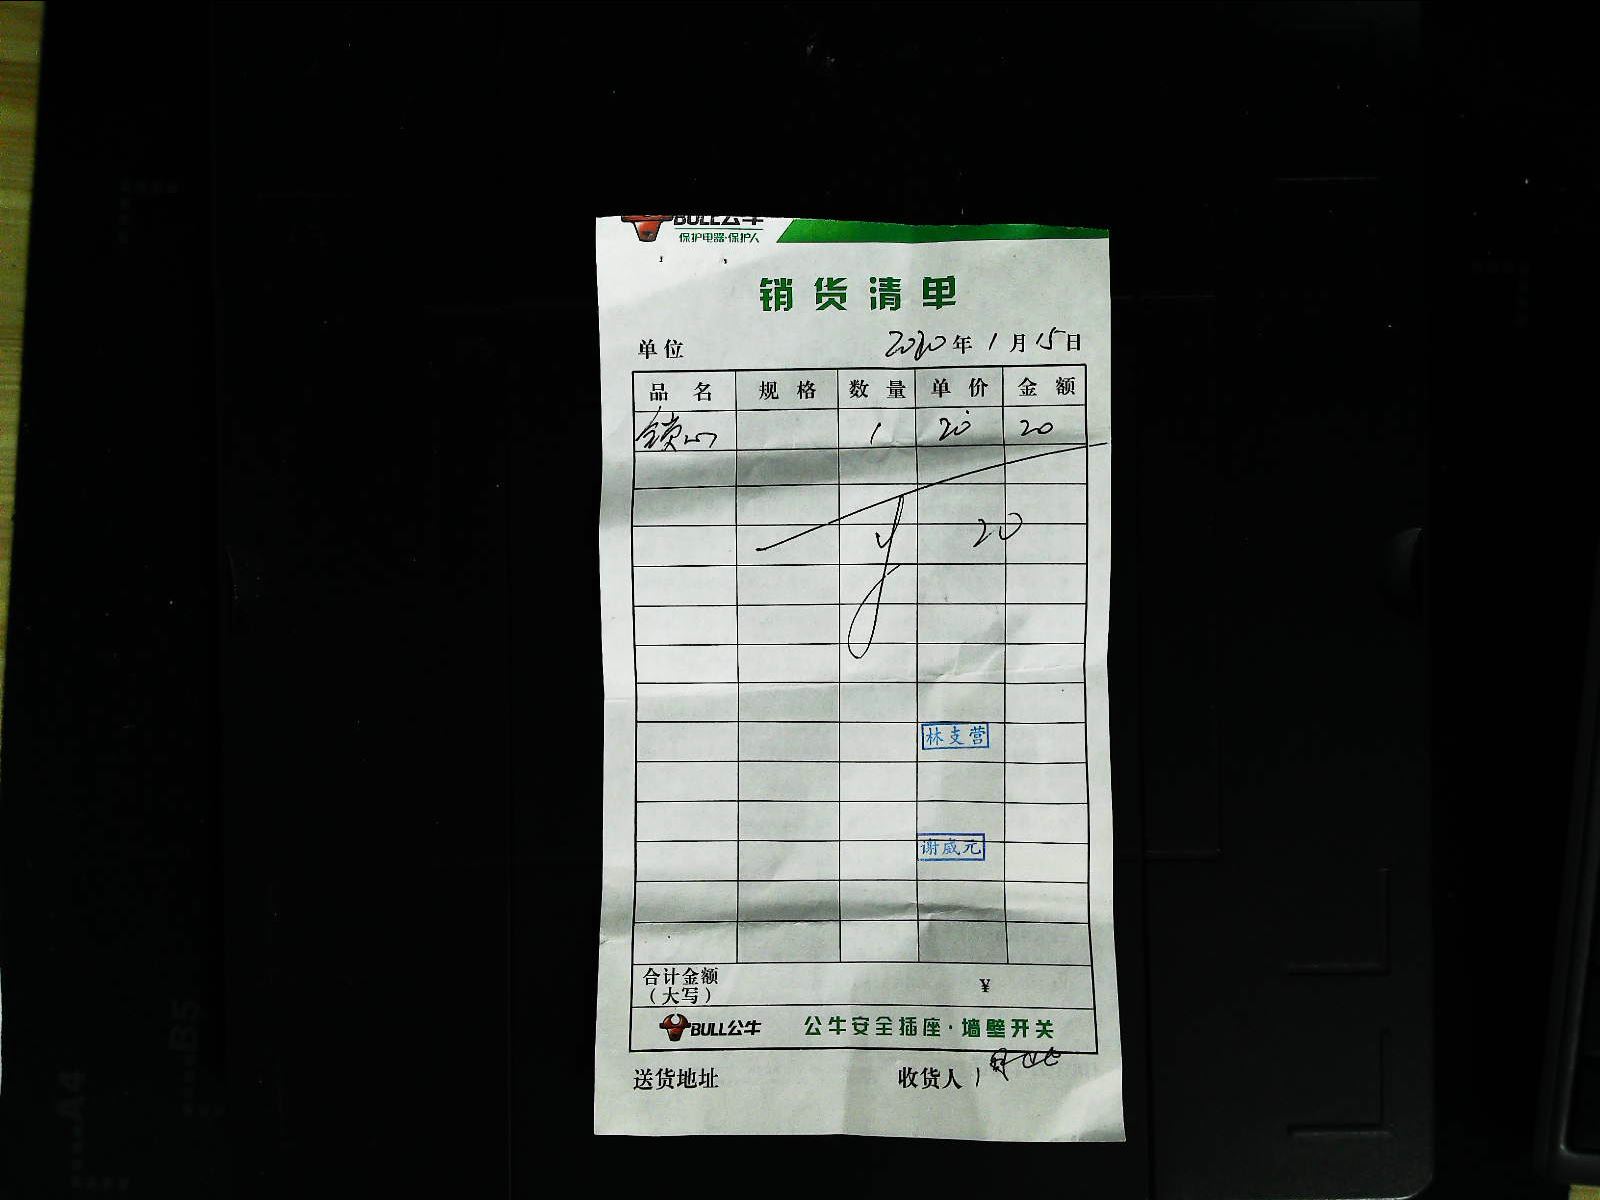 BULL公牛
保护电器·保护人
销货清单
单位 2020年1月15日
品名 规格 数量 单价 金额
锁心 1 20 20
20
林支营
谢威元
合计金额
（大写） ¥
BULL公牛 公牛安全插座·墙壁开关
送货地址 收货人